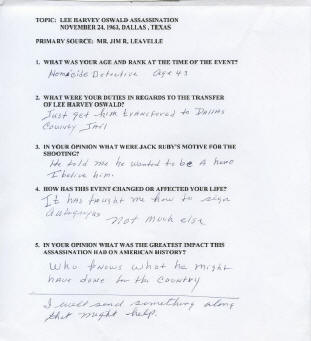 TOPIC: LEE HARVEY OSWALD ASSASSINATION
NOVEMBER 24, 1963, DALLAS, TEXAS
PRIMARY SOURCE: MR. JIM R. LEAVELLE
1. WHAT WAS YOUR AGE AND RANK AT THE TIME OF THE EVENT?
Homicide Detective Age 43
2. WHAT WERE YOUR DUTIES IN REGARDS TO THE TRANSFER
OF LEE HARVEY OSWALD?
Just get him transfered to Dallas
County Jail
3. IN YOUR OPINION WHAT WERE JACK RUBY'S MOTIVE FOR THE
SHOOTING?
He told me he wanted to be a hero
I belive him.
4. HOW HAS THIS EVENT CHANGED OR AFFECTED YOUR LIFE?
It has taught me how to sign
autographs
Not much else
5. IN YOUR OPINION WHAT WAS THE GREATEST IMPACT THIS
ASSASSINATION HAD ON AMERICAN HISTORY?
Who knows what he might
have done for the country
I will send something along
that might help.